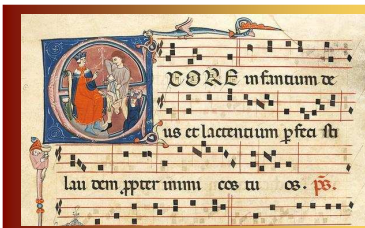 EXORE in fantium de
us et lactentium pfeci sti
lau dem ppter inimi cos tu os. ps.